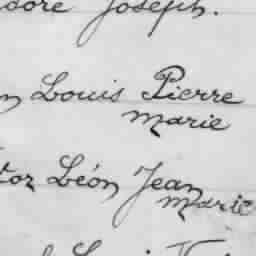 Joseph.
Louis Pierre
Marie
Léon Jean
Marie